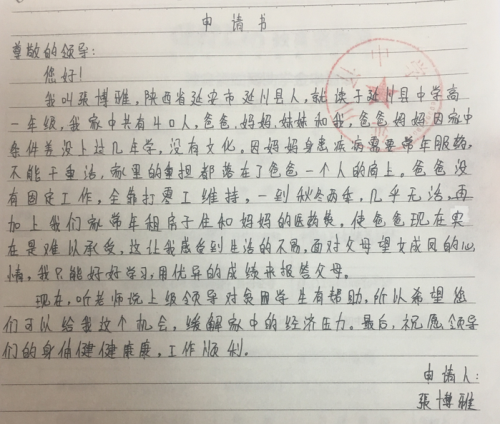 申请书
尊敬的领导:
您好!
我叫张博雅,陕西省延安市延川县人,就读于延川县中学高
一年级,我家中共有40人,爸爸、妈妈、妹妹和我,爸爸、妈妈因家中
条件差没上过几年学,没有文化。因妈妈身患疾病需要常年服药,
不能干重活,家里的重担都落在了爸爸一个人的肩上。爸爸没
有固定工作,全靠打零工维持,一到秋冬两季,几乎无活,再
加上我们家常年租房子住和妈妈的医药费,使爸爸现在实
在是难以承受,这让我感受到生活的不易,面对父母望女成凤的心
情,我只能好好学习,用优异的成绩来报答父母。
现在,听老师说上级领导对贫困学生有帮助,所以希望您
们可以给我这个机会,缓解家中的经济压力。最后,祝愿领导
们的身体健健康康,工作顺利。
申请人:
张博雅